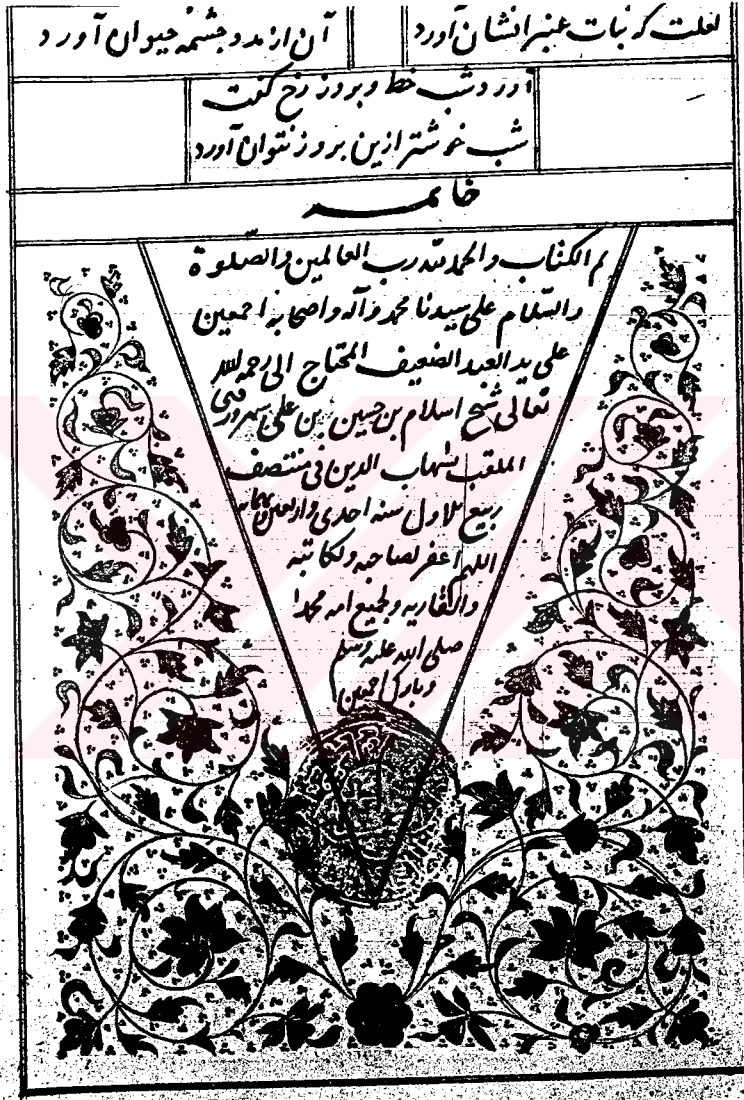 لعلت که نبات عنبر افشان آورد
آن از مدد چشمهٔ حیوان آورد
آورد شب خط و بروز رخ گفت
شب خوشتر ازین بروز نتوان آورد
خاتمه
تم الکتاب والحمد لله رب العالمین والصلوة
والسلام علی سیدنا محمد وآله واصحابه اجمعین
علی ید العبد الضعیف المحتاج الی رحمة الله
تعالی شیخ اسلام بن حسین بن علی سهروردی
الملقب بشهاب الدین فی منتصف
ربیع الاول سنه احدی واربعین
اللهم اغفر لصاحبه ولکاتبه
والقاریه ولجمیع امه محمد
صلی الله علیه وسلم
وبارک اجمعین